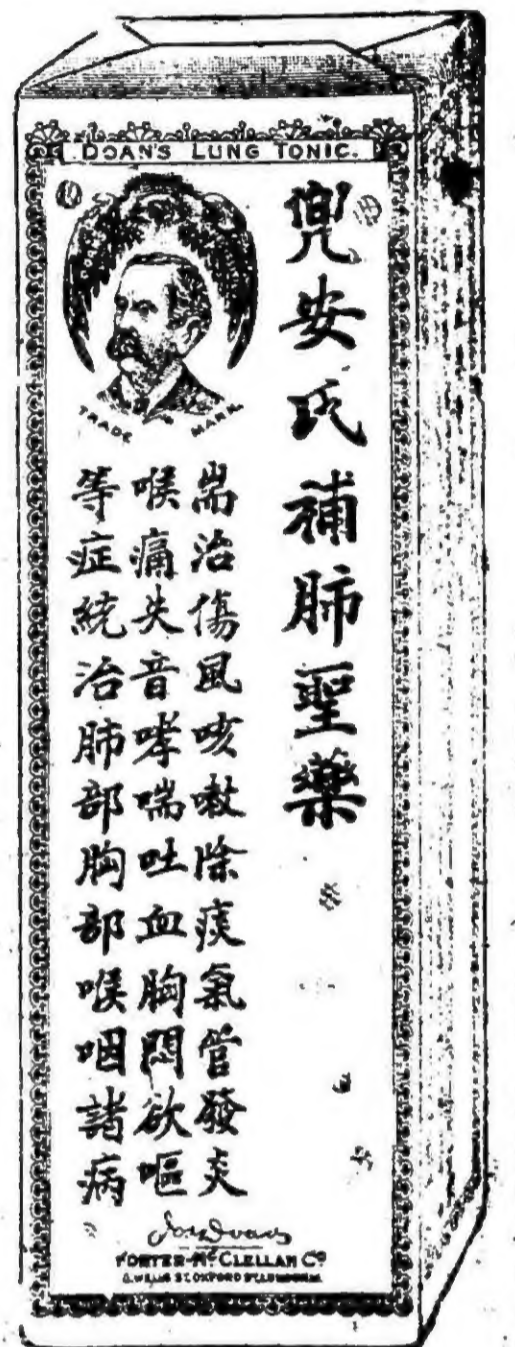 DOAN'S LUNG TONIC.
TRADE MARK.
兜安氏補肺聖藥
耑治傷風咳嗽除痰氣管發炎
喉痛失音哮喘吐血胸悶欲嘔
等症統治肺部胸部喉咽諸病
FOSTER-McCLELLAN Co